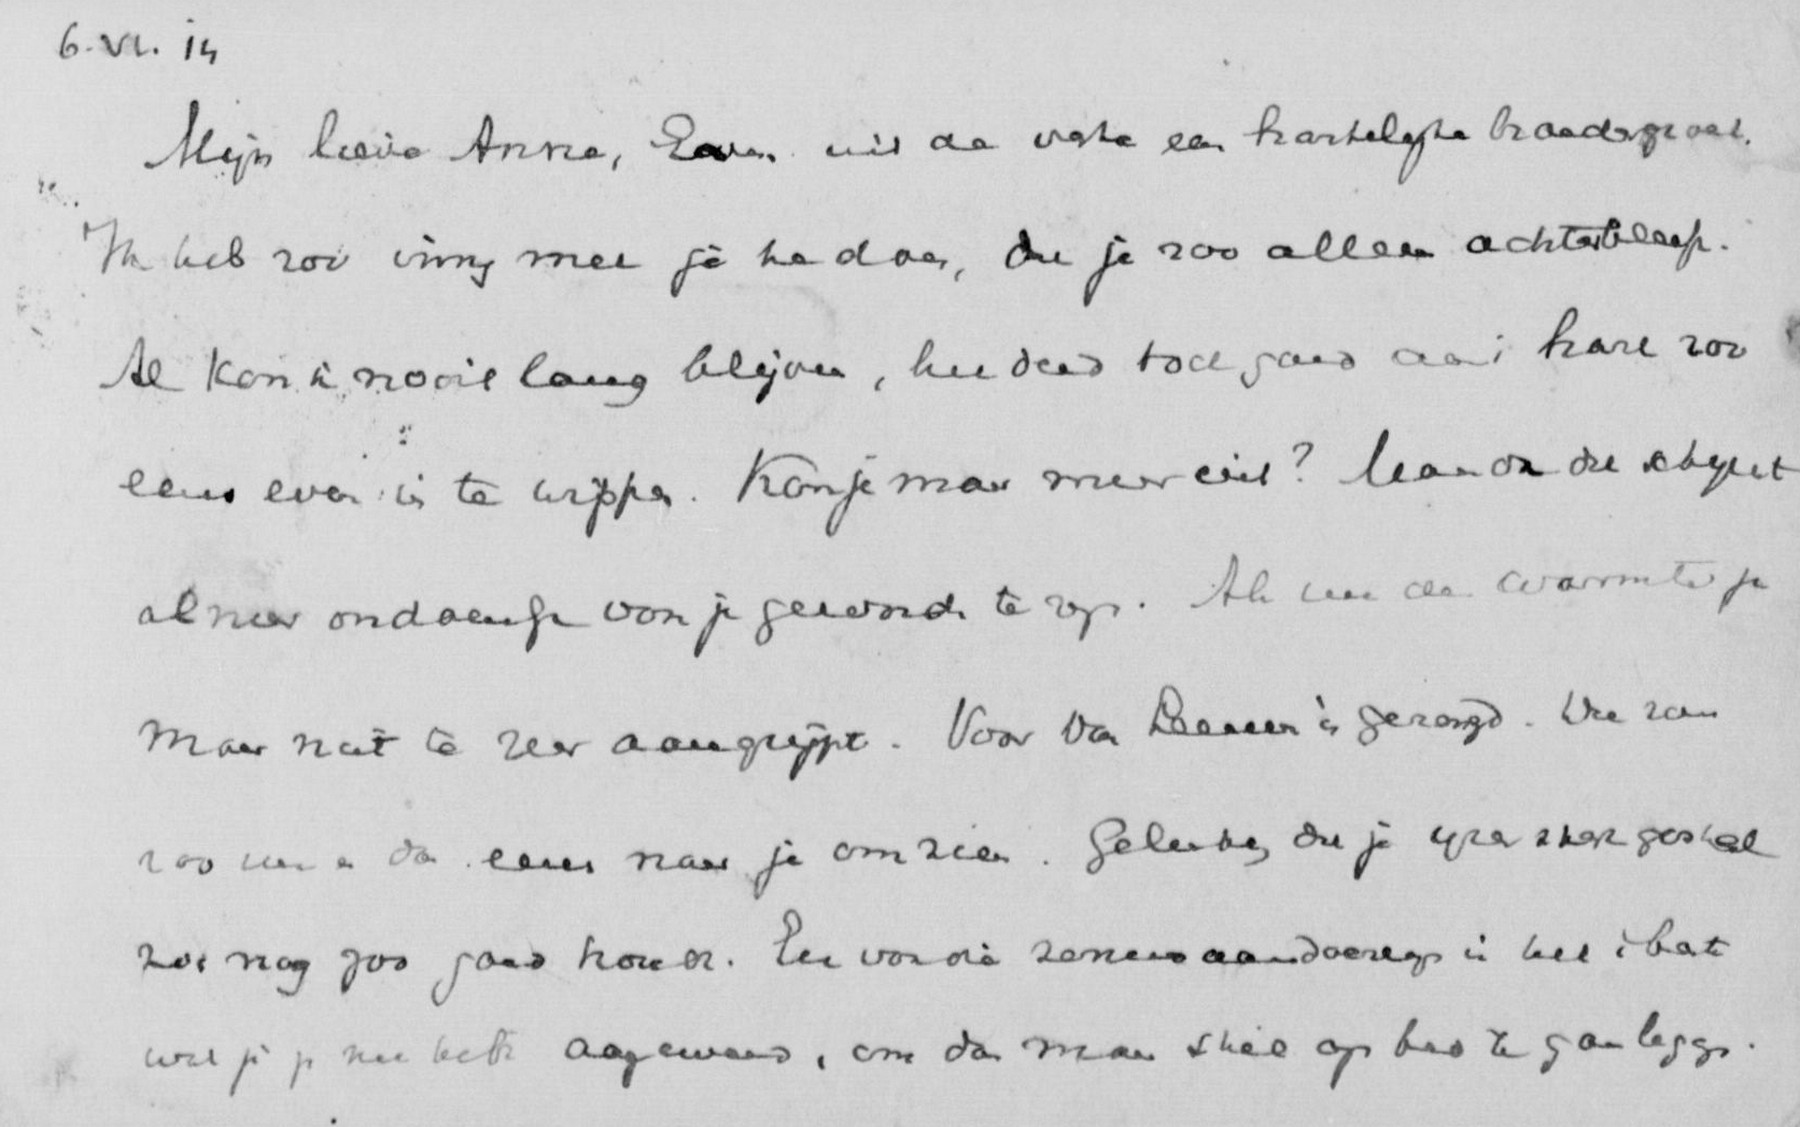 6.VI.14
Mijn lieve Anna, Even uit de verte een hartelijke broedergroet.
Ik heb zoo innig met je te doen, die je zoo alleen achterbleef.
Al kon ik nooit lang blijven, het deed toch goed aan 't hart zoo
eens even in te wippen. Kon je maar meer eens? Maar die schijnt
al meer ondoenlijk voor je geworden te zijn. Als nu de warmte je
maar niet te zeer aangrijpt. Voor Van Leeuwen is gezorgd. Die zou
zoo nu en dan eens naar je omzien. Gelukkig dat je ijzersterk gestel
zich nog zoo goed houdt. En voor die zenuwaandoeningen is het 't beste
wat je je nu hebt aangewend, om dan maar stil op bed te gaan leggen.